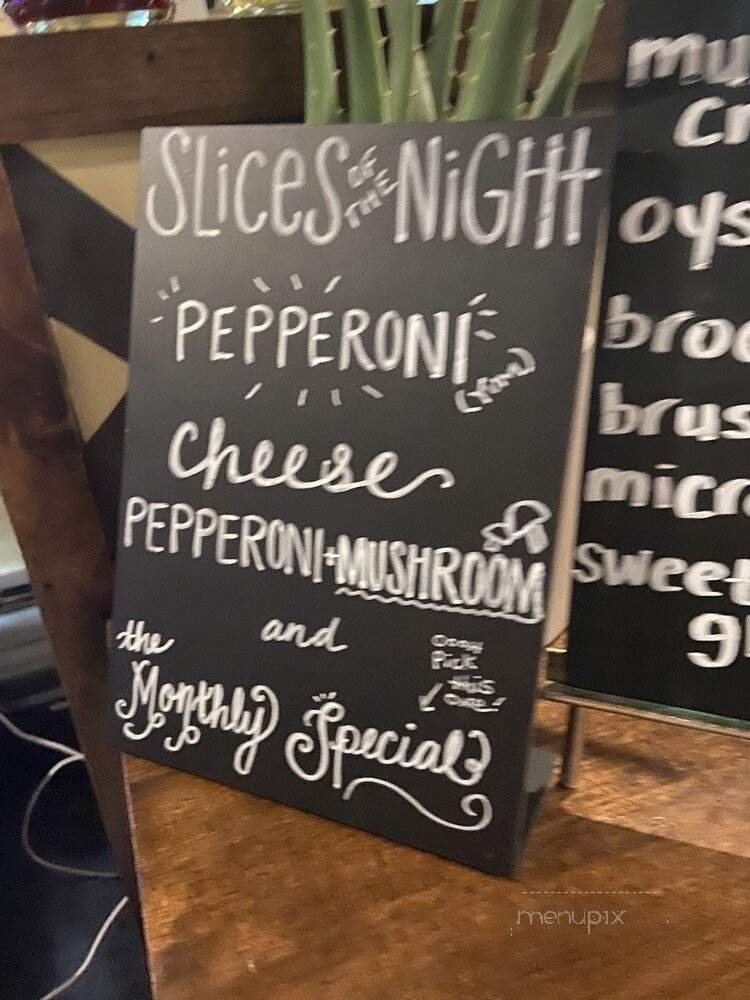 SLiCeS OF THE NiGHt
PEPPERONi
cheese
PEPPERONi+MUSHROOM
and
the
Monthly Special
Pick
this
one!
mu
cr
oys
broc
brus
micr
sweet
menupix